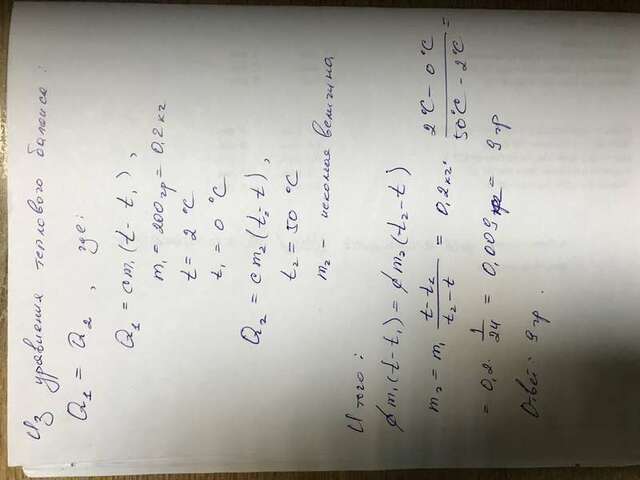 Из уравнения теплового баланса:
Q₁ = Q₂ , где:
Q₁ = cm₁(t - t₁),
m₁ = 200гр = 0,2кг
t = 2 °C
t₁ = 0 °C
Q₂ = cm₂(t₂ - t),
t₂ = 50 °C
m₂ - искомая величина
Итого:
cm₁(t-t₁) = cm₂(t₂-t)
m₂ = m₁ (t-t₁)/(t₂-t) = 0,2кг· (2°C - 0°C)/(50°C - 2°C) =
= 0,2· 1/24 = 0,009 = 9гр
Ответ: 9гр.